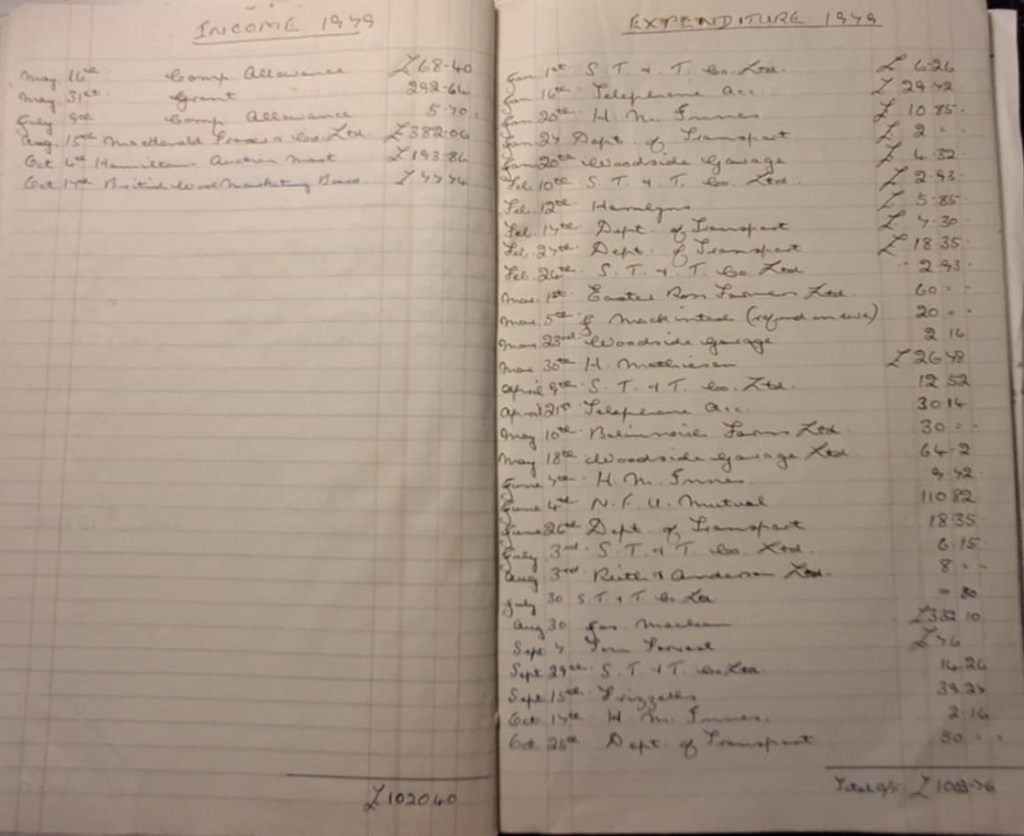 INCOME 1979
May 16th Comp Allowance £68-40
May 31st Grant 292-64
July 9th Comp Allowance 5-70
Aug. 15th MacDonald Fraser & Co Ltd. £382-06
Oct 4th Hamilton Auction Mart £193-86
Oct 17th British Wool Marketing Board £77-74
£1020 40
EXPENDITURE 1979
Jan 1st S. T. & T. Co. Ltd. £ 6-26
Jan 16th Telephone Acc. £ 29-72
Jan 20th H. M. Innes £ 10-85
Jan 24 Dept. of Transport £ 2 - -
Jan 20th Woodside Garage £ 4-32
Feb. 10th S. T. & T. Co. Ltd. £ 2-93
Feb. 12th Hamlyns £ 5-85
Feb. 14th Dept. of Transport £ 7-30
Feb. 27th Dept. of Transport £ 18-35
Feb. 26th S. T. & T. Co Ltd 2-93
Mar. 1st Easter Ross Farmers Ltd. 60 - -
Mar. 5th Mackintosh (refund on ewe) 20 - -
Mar 23rd Woodside Garage 2 16
Mar 30th H. Mathieson £26 78
April 9th S. T. & T. Co. Ltd. 12 52
April 21st Telephone Acc. 30 14
May 10th Balinroich Farms Ltd. 30 - -
May 18th Woodside Garage Ltd 64-2
June 7th H. M. Innes 9-72
June 4th N. F. U. Mutual 110 82
June 26th Dept. of Transport 18-35
July 3rd S. T. & T. Co. Ltd. 6-15
Aug 3rd Reith & Anderson Ltd. 8 - -
July 30 S. T. & T. Co Ltd - 80
Aug 30 Jas. Maclean £332 10
Sept 7 Tom Forrest £76
Sept 29th S. T. & T. Co Ltd 14-26
Sept. 15th Frizzells 39-27
Oct. 17th H. M. Innes. 2-16
Oct. 25th Dept. of Transport 50 - -
Total £